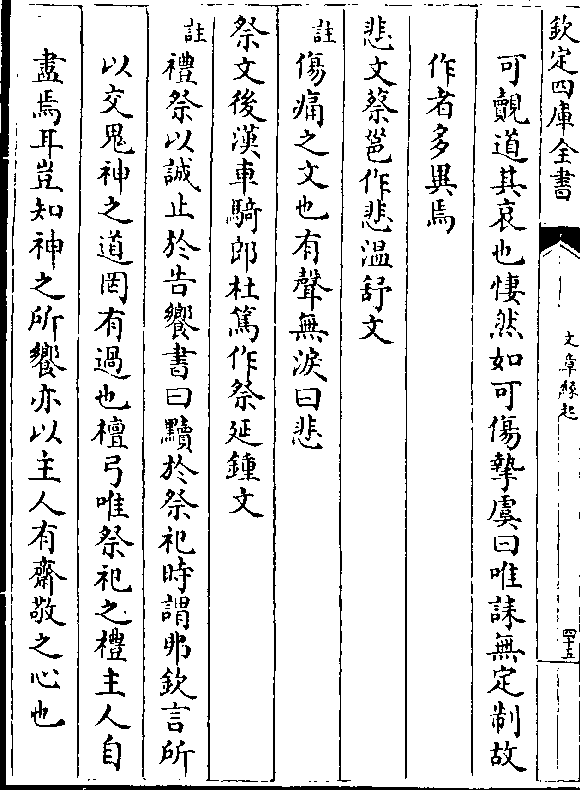 欽定四庫全書
文章緣起
四十五
可覿道其哀也悽然如可傷摯虞曰唯誄無定制故
作者多異焉
悲文蔡邕作悲溫舒文
註傷痛之文也有聲無淚曰悲
祭文後漢車騎郎杜篤作祭延鍾文
註禮祭以誠止於告饗書曰黷於祭祀時謂弗欽言所
以交鬼神之道罔有過也檀弓唯祭祀之禮主人自
盡焉耳豈知神之所饗亦以主人有齋敬之心也